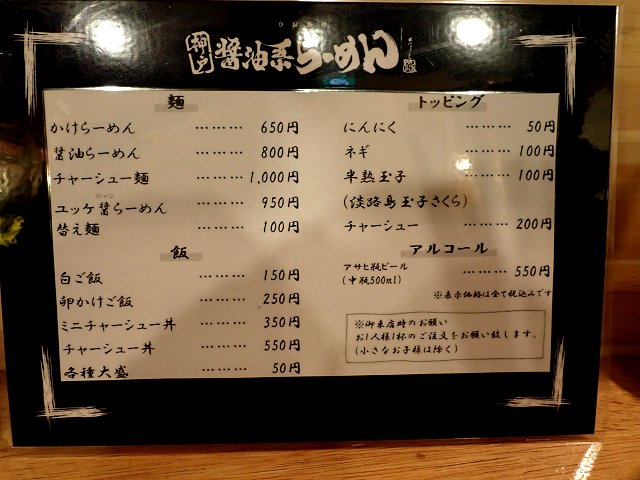 神戸 醤油系らーめん
麺
かけらーめん ……… 650円
醤油らーめん ……… 800円
チャーシュー麺 ……… 1,000円
ジャン
ユッケ醤らーめん ……… 950円
替え麺 ……… 100円
飯
白ご飯 ……… 150円
卵かけご飯 ……… 250円
ミニチャーシュー丼 ……… 350円
チャーシュー丼 ……… 550円
各種大盛 ……… 50円
トッピング
にんにく ……… 50円
ネギ ……… 100円
半熟玉子 ……… 100円
(淡路島玉子さくら)
チャーシュー ……… 200円
アルコール
アサヒ瓶ビール
(中瓶500ml) ……… 550円
※表示価格は全て税込みです
※御来店時のお願い
お1人様1杯のご注文をお願い致します。
(小さなお子様は除く)